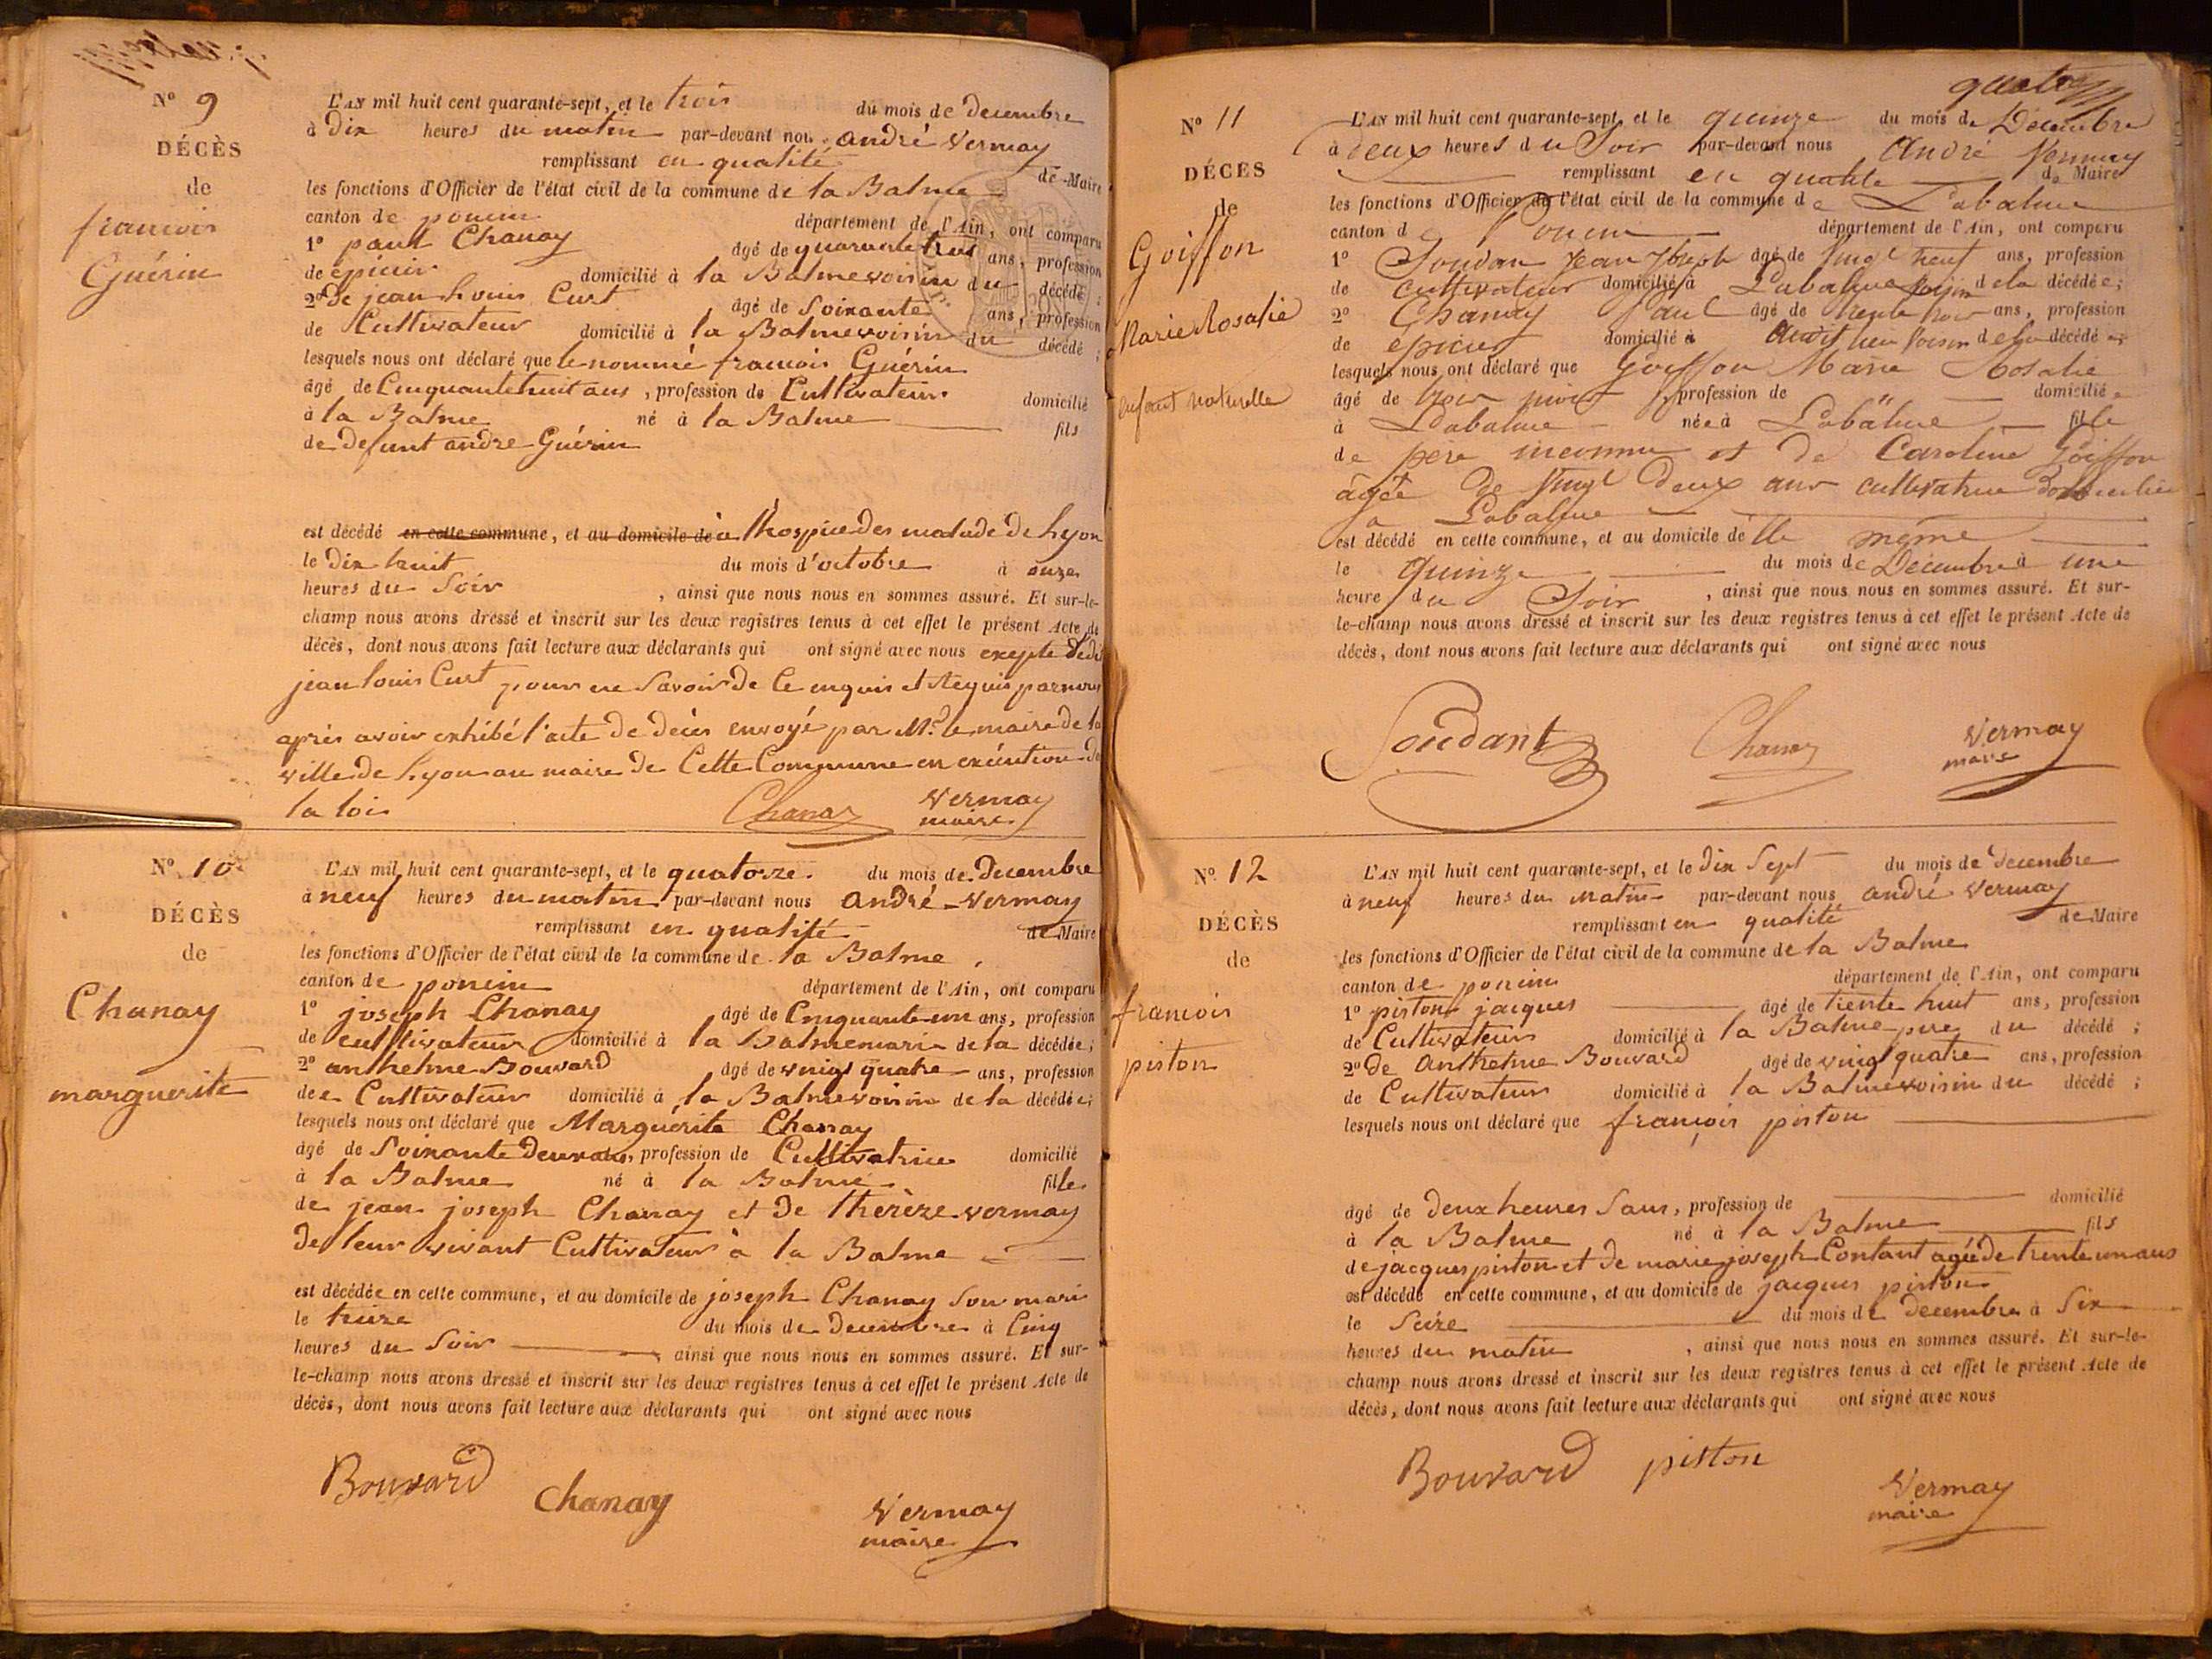 N° 9
DÉCÈS
de
francois
Guérin
L'AN mil huit cent quarante-sept, et le trois du mois de Decembre
à Dix heures du matin par-devant nous andré Vermay
remplissant en qualité de Maire
les fonctions d'Officier de l'état civil de la commune de la Balme
canton de poncin département de l'Ain, ont comparu
1° paul Chanay âgé de quarante trois ans, profession
de épicier domicilié à la Balme voisin du décédé ;
2° de jean Louis Curt âgé de Soixante ans, profession
de Cultivateur domicilié à la Balme voisin du décédé ;
lesquels nous ont déclaré que le nommé francois Guérin
âgé de Cinquante huit ans, profession de Cultivateur domicilié
à la Balme né à la Balme fils
de defunt andre Guérin
est décédé en cette commune, et au domicile de à l'hospice des malade de Lyon
le Dix huit du mois d'octobre à onze
heures du Soir, ainsi que nous nous en sommes assuré. Et sur-le-
champ nous avons dressé et inscrit sur les deux registres tenus à cet effet le présent Acte de
décès, dont nous avons fait lecture aux déclarants qui ont signé avec nous excepte
jean louis Curt pour ne Savoir de Ce enquis et Requis par nous
après avoir exhibé l'acte de décès envoyé par Mr le maire de la
ville de Lyon au maire de Cette Commune en exécution de
la loi Chanay Vermay
maire
N° 10
DÉCÈS
de
Chanay
marguerite
L'AN mil huit cent quarante-sept, et le quatorze du mois de Decembre
à neuf heures du matin par-devant nous André Vermay
remplissant en qualité de Maire
les fonctions d'Officier de l'état civil de la commune de la Balme,
canton de poncin département de l'Ain, ont comparu
1° joseph Chanay âgé de Cinquante un ans, profession
de cultivateur domicilié à la Balme mari de la décédée ;
2° anthelme Bouvard âgé de vingt quatre ans, profession
de Cultivateur domicilié à la Balme voisin de la décédée ;
lesquels nous ont déclaré que Marguérite Chanay
âgé de Soixante Deux ans, profession de Cultivatrice domicilié
à la Balme né à la Balme fille
de jean joseph Chanay et de thérèze vermay
de leur vivant Cultivateur à la Balme
est décédée en cette commune, et au domicile de joseph Chanay Son mari
le treize du mois de Decembre à Cinq
heures du Soir, ainsi que nous nous en sommes assuré. Et sur-
le-champ nous avons dressé et inscrit sur les deux registres tenus à cet effet le présent Acte de
décès, dont nous avons fait lecture aux déclarants qui ont signé avec nous
Bouvard Chanay Vermay
maire
N° 11
DÉCÈS
de
Goiffon
Marie Rosalie
enfant naturelle
L'AN mil huit cent quarante-sept, et le quinze du mois de Décembre
à deux heures du Soir par-devant nous André Vermay
remplissant en qualité de Maire
les fonctions d'Officier de l'état civil de la commune de Labalme
canton de Poncin département de l'Ain, ont comparu
1° Soudan Jean Joseph âgé de Vingt neuf ans, profession
de cultivateur domicilié à Labalme voisin de la décédée ;
2° Chanay Paul âgé de trente trois ans, profession
de epicier domicilié à dudit lieu voisin de la décédée ;
lesquels nous ont déclaré que Goiffon Marie Rosalie
âgé de trois mois, profession de domicilié
à Labalme née à Labalme fille
de père inconnu et de Caroline Goiffon
âgée de Vingt deux ans cultivatrice domiciliée
à Labalme
est décédé en cette commune, et au domicile de elle même
le quinze du mois de Décembre à une
heure du Soir, ainsi que nous nous en sommes assuré. Et sur-
le-champ nous avons dressé et inscrit sur les deux registres tenus à cet effet le présent Acte de
décès, dont nous avons fait lecture aux déclarants qui ont signé avec nous
Soudant Chanay Vermay
maire
N° 12
DÉCÈS
de
francois
piston
L'AN mil huit cent quarante-sept, et le dix Sept du mois de Decembre
à neuf heures du matin par-devant nous andré Vermay
remplissant en qualité de Maire
les fonctions d'Officier de l'état civil de la commune de la Balme
canton de poncin département de l'Ain, ont comparu
1° piston jacques âgé de trente huit ans, profession
de Cultivateur domicilié à la Balme pere du décédé ;
2° de Anthelme Bouvard âgé de vingt quatre ans, profession
de Cultivateur domicilié à la Balme voisin du décédé ;
lesquels nous ont déclaré que françois piston
âgé de deux heures Sans, profession de domicilié
à la Balme né à la Balme fils
de jacques piston et de marie joseph Contant agée de trente un ans
est décédé en cette commune, et au domicile de jacques piston
le Seize du mois de decembre à Six
heures du matin, ainsi que nous nous en sommes assuré. Et sur-le-
champ nous avons dressé et inscrit sur les deux registres tenus à cet effet le présent Acte de
décès, dont nous avons fait lecture aux déclarants qui ont signé avec nous
Bouvard piston Vermay
maire